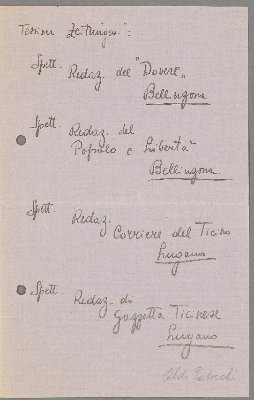 Tessin
Spett. Redaz. del "Dovere"
Bellinzona
Spett. Redaz. del
Popolo e Libertà
Bellinzona
Spett. Redaz.
Corriere del Ticino
Lugano
Spett. Redaz. di
Gazzetta Ticinese
Lugano
Aldo